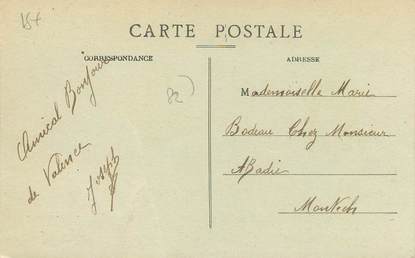 15f
CARTE POSTALE
CORRESPONDANCE
ADRESSE
82)
Amical Bonjour
de Valence
Joseph
Mademoiselle Marie
Bodeau Chez Monsieur
Abadie
Montech